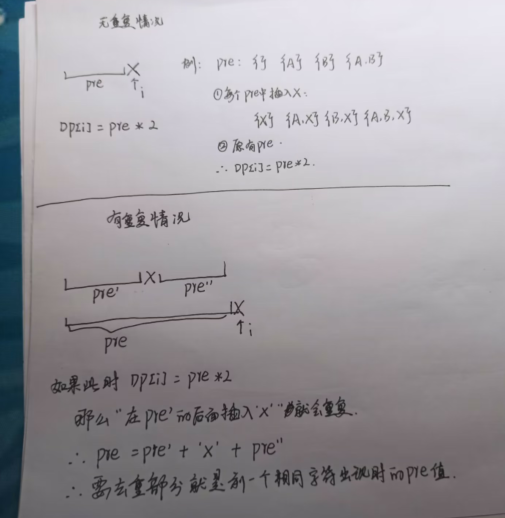 无重复情况
pre X
↑i
例: pre: {} {A} {B} {A,B}
①每个pre中插入X:
{X} {A,X} {B,X} {A,B,X}
DP[i] = pre * 2
②原有pre.
∴ DP[i] = pre*2.
有重复情况
X
pre' pre''
X
pre ↑i
如果此时 DP[i] = pre *2
那么"在pre'的后面插入'x'"就会重复.
∴ pre = pre' + 'x' + pre''
∴ 要去重部分就是前一个相同字符出现时的pre值.